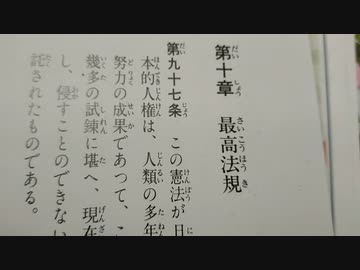 第十章　最高法規
第九十七条　この憲法が日
本的人権は、人類の多年
努力の成果であつて、こ
幾多の試錬に堪へ、現在
し、侵すことのできない
託されたものである。